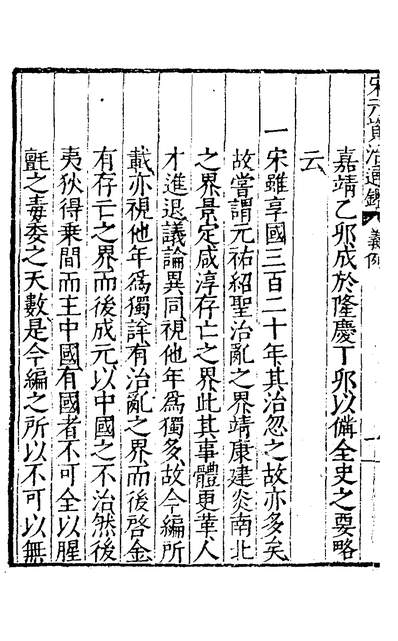 宋元資治通鑑 義例 一
嘉靖乙卯成於隆慶丁卯以備全史之要略
云
一宋雖享國三百二十年其治忽之故亦多矣
故嘗謂元祐紹聖治亂之界靖康建炎南北
之界景定咸淳存亡之界此其事體更革人
才進退議論異同視他年爲獨多故今編所
載亦視他年爲獨詳有治亂之界而後啓金
有存亡之界而後成元以中國之不治然後
夷狄得乗間而主中國有國者不可全以腥
氈之毒委之天數是今編之所以不可以無